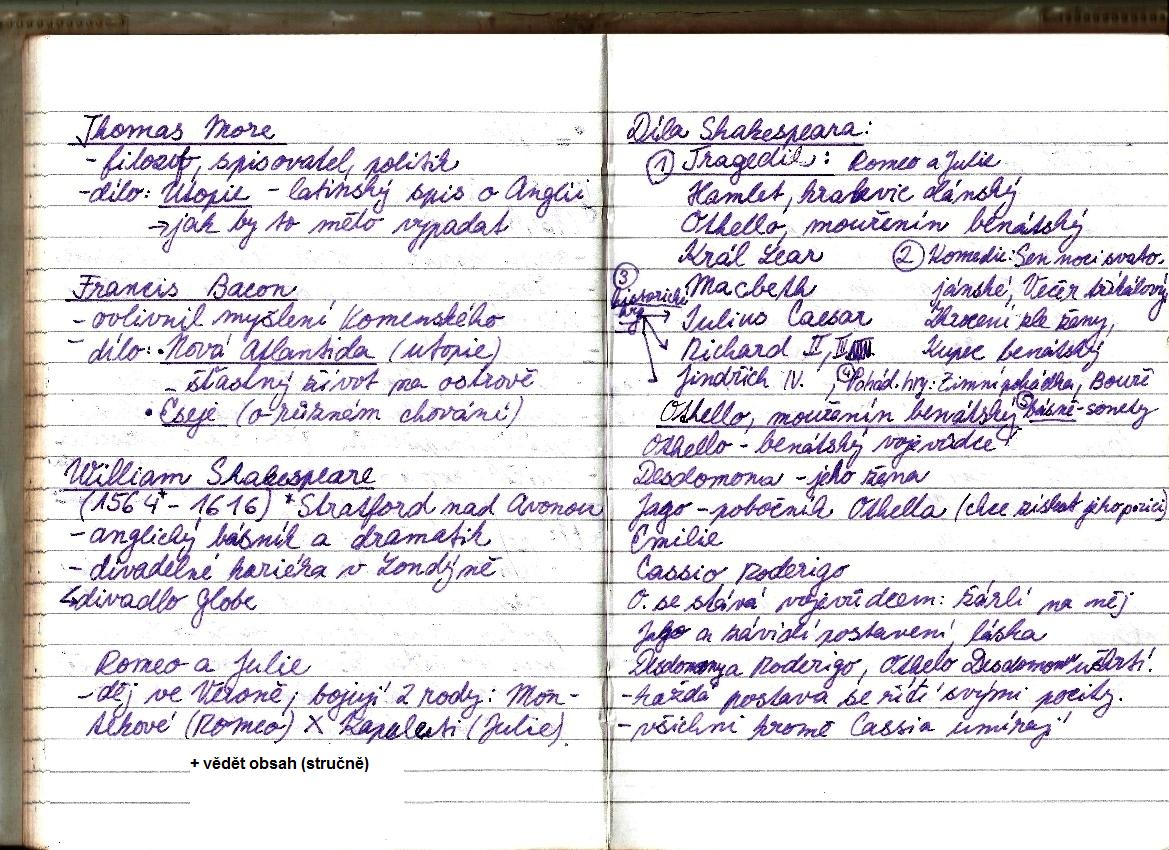 Thomas More
- filozof, spisovatel, politik
- dílo: Utopie - latinský spis o Anglii
→ jak by to mělo vypadat
Francis Bacon
- ovlivnil myšlení Komenského
- dílo: • Nová Atlantida (utopie)
- šťastný život na ostrově
• Eseje (o různém chování)
William Shakespeare
(1564 - 1616) * Stratford nad Avonou
- anglický básník a dramatik
- divadelné kariéra v Londýně
↳ divadlo Globe
Romeo a Julie
- děj ve Veroně, bojují 2 rody: Mon-
tekové (Romeo) X Kapuleti (Julie)
+ vědět obsah (stručně)
Díla Shakespeara:
① Tragedie: Romeo a Julie
Hamlet, kralevic dánský
Othello, mouřenín benátský
Král Lear
Macbeth
③ historické hry
Julius Caesar
Richard II, III
Jindřich IV.
② Komedie: Sen noci svato-
jánské, Večer tříkrálový
Zkrocení zlé ženy,
Kupec benátský
④ Pohád. hry: Zimní pohádka, Bouře
⑤ básně - sonety
Othello, mouřenín benátský
Othello - benátský vojevůdce
Desdomona - jeho žena
Jago - pobočník Othella (chce získat jeho pozici)
Emilie
Cassio Roderigo
O. se stává vojevůdcem: žárlí na něj
Jago a závidí postavení, láska
Desdomony a Roderigo, Othelo Desdomonu uškrtí!
- každá postava se řítí svými pocity.
- všichni kromě Cassia umírají